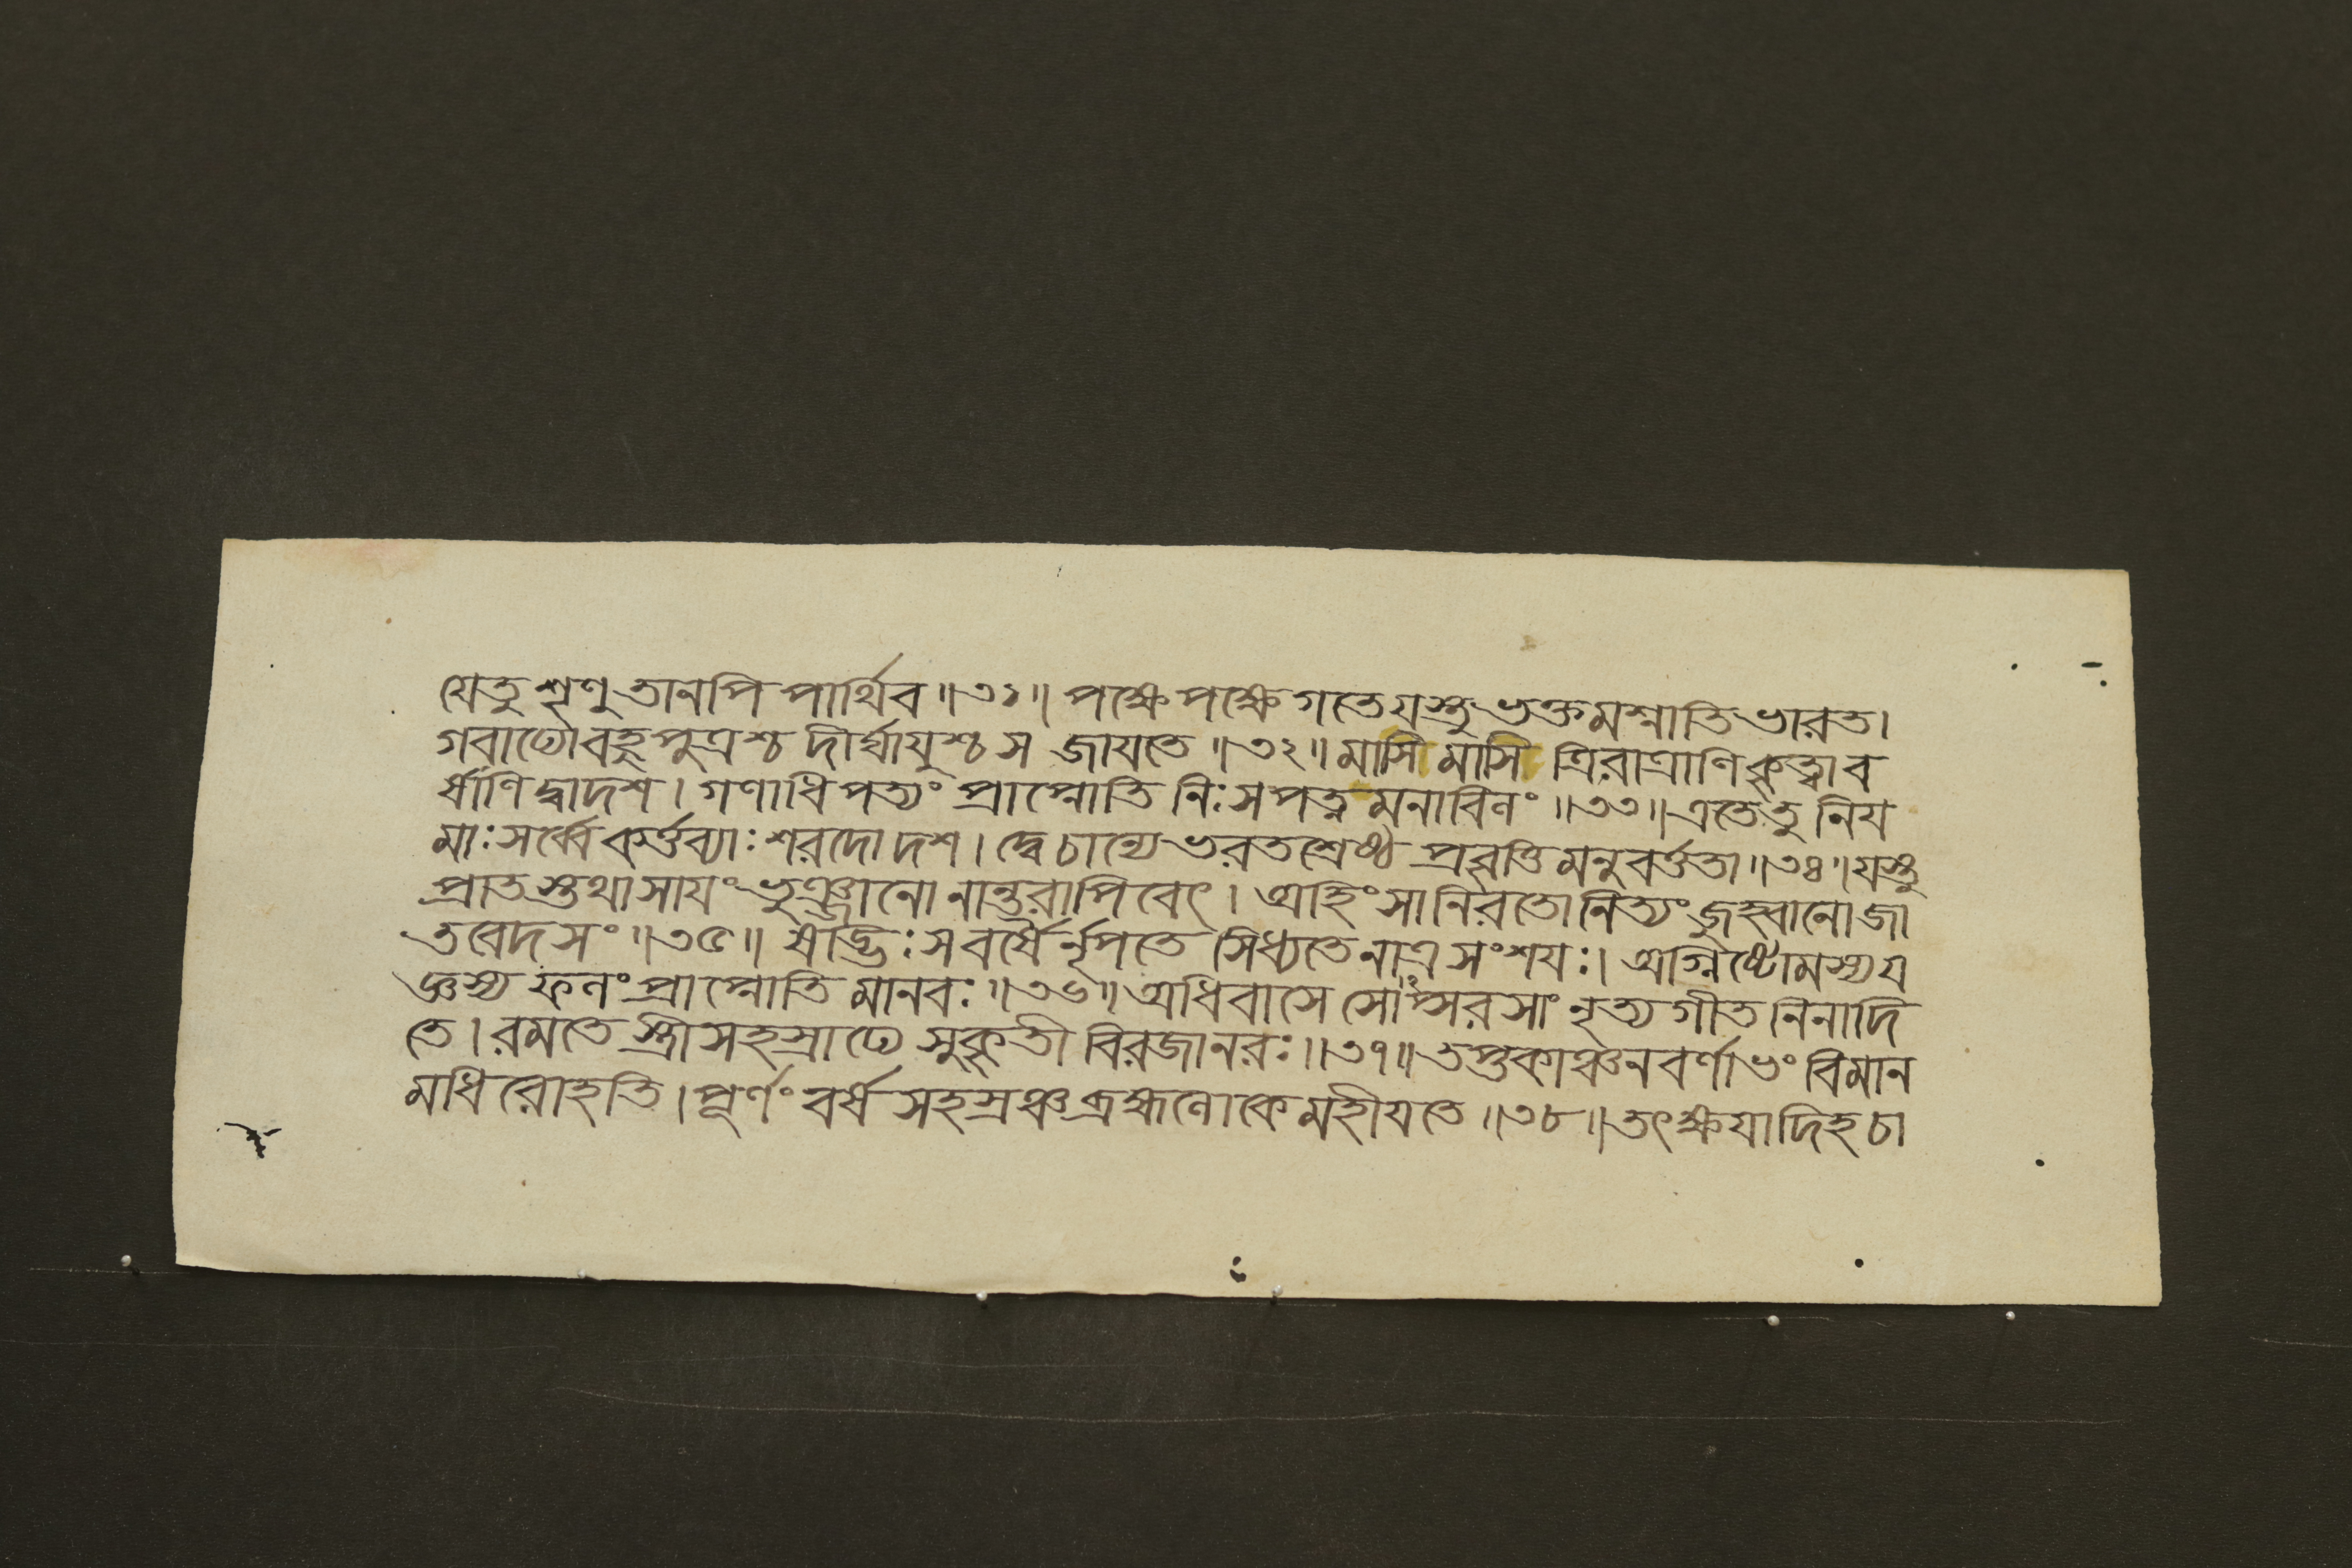 যেতু শৃণু তানপি পার্থিব॥৩১॥ পক্ষে পক্ষে গতে যস্তু ভক্তমশ্নাতি ভারত।
গবাঢ্যো বহুপুত্রশ্চ দীর্ঘাযুশ্চ স জাযতে॥৩২॥ মাসি মাসি ত্রিরাত্রাণি কৃত্বা ব
র্ষাণি দ্বাদশ। গণাধিপত্যং প্রাপ্নোতি নিঃসপত্নমনাবিলং॥৩৩॥ এতে তু নিয
মাঃ সর্ব্বে কর্ত্তব্যাঃ শরদো দশ। দ্বে চান্যে ভরতশ্রেষ্ঠ প্রবৃত্তিমনুবর্ত্ততা॥৩৪॥ যস্তু
প্রাতস্তথা সাযং ভুঞ্জানো নান্তরা পিবেৎ। অহিংসানিরতো নিত্যং জুহ্বানো জা
তবেদসং॥৩৫॥ ষড্ভিঃ স বর্ষৈর্নৃপতে সিধ্যতে নাত্র সংশযঃ। অগ্নিষ্টোমস্য য
জ্ঞস্য ফলং প্রাপ্নোতি মানবঃ॥৩৬॥ অধিবাসে সোঽপ্সরসাং নৃত্যগীতনিনাদি
তে। রমতে স্ত্রীসহস্রাঢ্যে সুকৃতী বিরজা নরঃ॥৩৭॥ তপ্তকাঞ্চনবর্ণাভং বিমান
মধিরোহতি। পূর্ণং বর্ষসহস্রঞ্চ ব্রহ্মলোকে মহীযতে॥৩৮॥ তৎক্ষযাদিহ চা